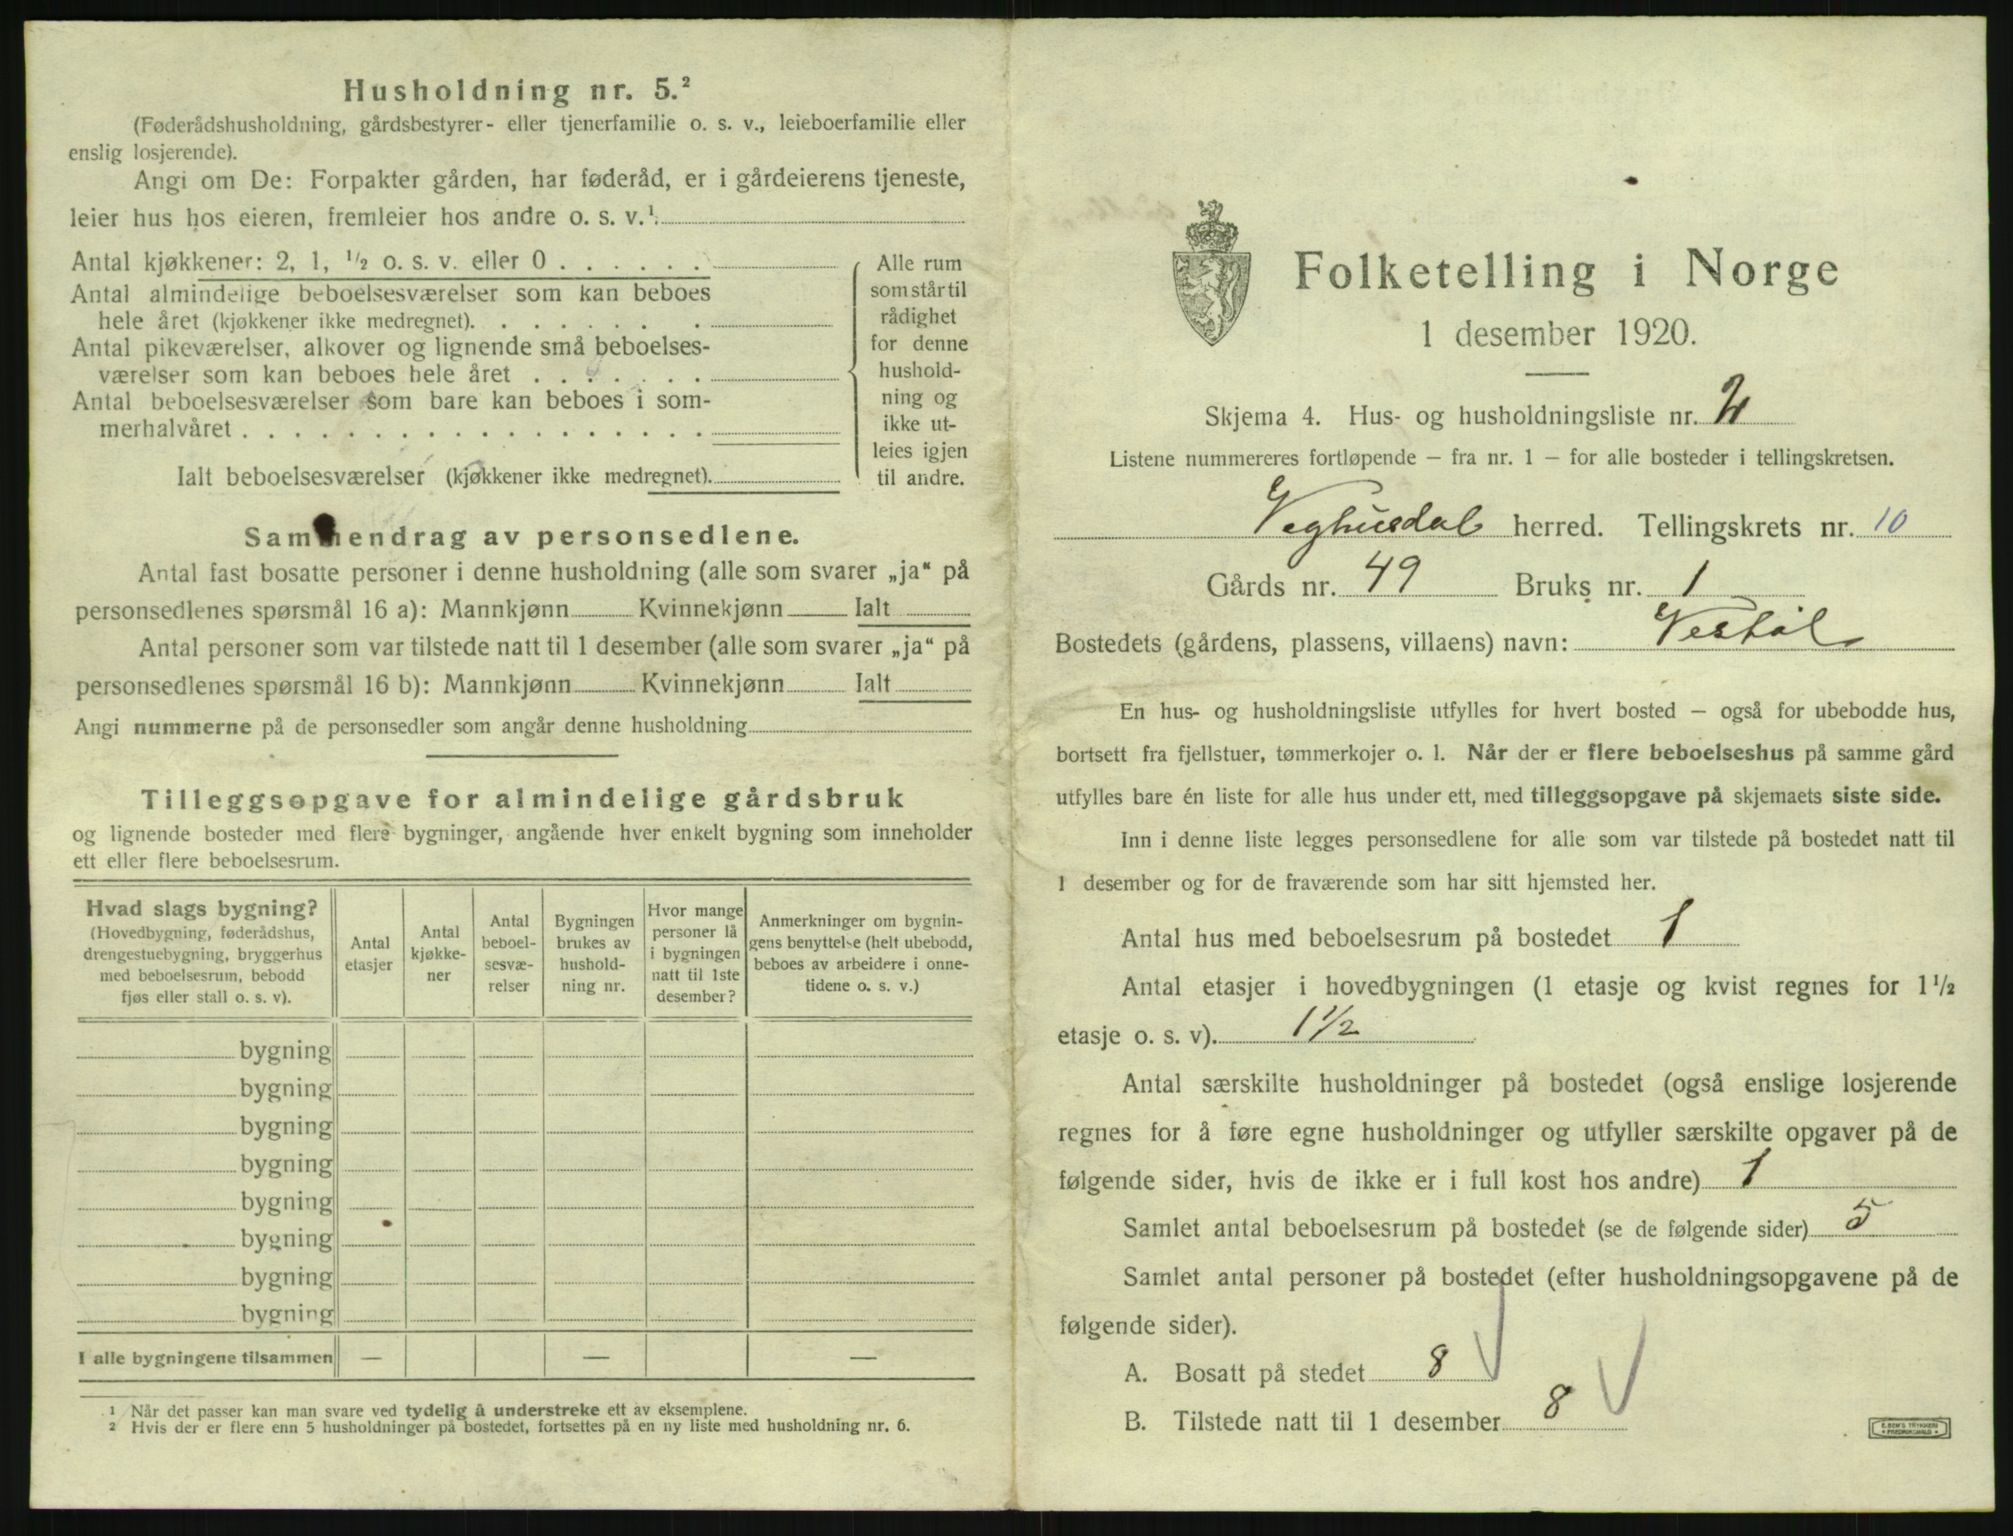 Husholdning nr. 5.²
(Føderådshusholdning, gårdsbestyrer- eller tjenerfamilie o. s. v., leieboerfamilie eller
enslig losjerende).
Angi om De: Forpakter gården, har føderåd, er i gårdeierens tjeneste,
leier hus hos eieren, fremleier hos andre o. s. v.¹.
Antal kjøkkener: 2, 1, ¹/₂ o. s. v. eller 0 . . . . . .
Antal almindelige beboelsesværelser som kan beboes
hele året (kjøkkener ikke medregnet). . . . . . . .
Antal pikeværelser, alkover og lignende små beboelses-
værelser som kan beboes hele året . . . . . . .
Antal beboelsesværelser som bare kan beboes i som-
merhalvåret . . . . . . . . . . . . . . . . . .
Ialt beboelsesværelser (kjøkkener ikke medregnet).
Alle rum
som står til
rådighet
for denne
hushold-
ning og
ikke ut-
leies igjen
til andre.
Sammendrag av personsedlene.
Antal fast bosatte personer i denne husholdning (alle som svarer „ja“ på
personsedlenes spørsmål 16 a): Mannkjønn Kvinnekjønn Ialt
Antal personer som var tilstede natt til 1 desember (alle som svarer „ja“ på
personsedlenes spørsmål 16 b): Mannkjønn Kvinnekjønn Ialt
Angi nummerne på de personsedler som angår denne husholdning
Tilleggsopgave for almindelige gårdsbruk
og lignende bosteder med flere bygninger, angående hver enkelt bygning som inneholder
ett eller flere beboelsesrum.
Hvad slags bygning?
(Hovedbygning, føderådshus,
drengestuebygning, bryggerhus
med beboelsesrum, bebodd
fjøs eller stall o. s. v).
Antal
etasjer
Antal
kjøkke-
ner
Antal
beboel-
sesvæ-
relser
Bygningen
brukes av
hushold-
ning nr.
Hvor mange
personer lå
i bygningen
natt til 1ste
desember?
Anmerkninger om bygnin-
gens benyttelse (helt ubebodd,
beboes av arbeidere i onne-
tidene o. s. v.)
bygning
bygning
bygning
bygning
bygning
bygning
bygning
bygning
I alle bygningene tilsammen — — —
¹ Når det passer kan man svare ved tydelig å understreke ett av eksemplene.
² Hvis der er flere enn 5 husholdninger på bostedet, fortsettes på en ny liste med husholdning nr. 6.
Folketelling i Norge
1 desember 1920.
Skjema 4. Hus- og husholdningsliste nr. 2
Listene nummereres fortløpende — fra nr. 1 — for alle bosteder i tellingskretsen.
Veghusdal herred. Tellingskrets nr. 10
Gårds nr. 49 Bruks nr. 1
Bostedets (gårdens, plassens, villaens) navn: Vestøl
En hus- og husholdningsliste utfylles for hvert bosted — også for ubebodde hus,
bortsett fra fjellstuer, tømmerkojer o. l. Når der er flere beboelseshus på samme gård
utfylles bare én liste for alle hus under ett, med tilleggsopgave på skjemaets siste side.
Inn i denne liste legges personsedlene for alle som var tilstede på bostedet natt til
1 desember og for de fraværende som har sitt hjemsted her.
Antal hus med beboelsesrum på bostedet 1
Antal etasjer i hovedbygningen (1 etasje og kvist regnes for 1¹/₂
etasje o. s. v). 1½
Antal særskilte husholdninger på bostedet (også enslige losjerende
regnes for å føre egne husholdninger og utfyller særskilte opgaver på de
følgende sider, hvis de ikke er i full kost hos andre) 1
Samlet antal beboelsesrum på bostedet (se de følgende sider) 5
Samlet antal personer på bostedet (efter husholdningsopgavene på de
følgende sider).
A. Bosatt på stedet 8
B. Tilstede natt til 1 desember 8